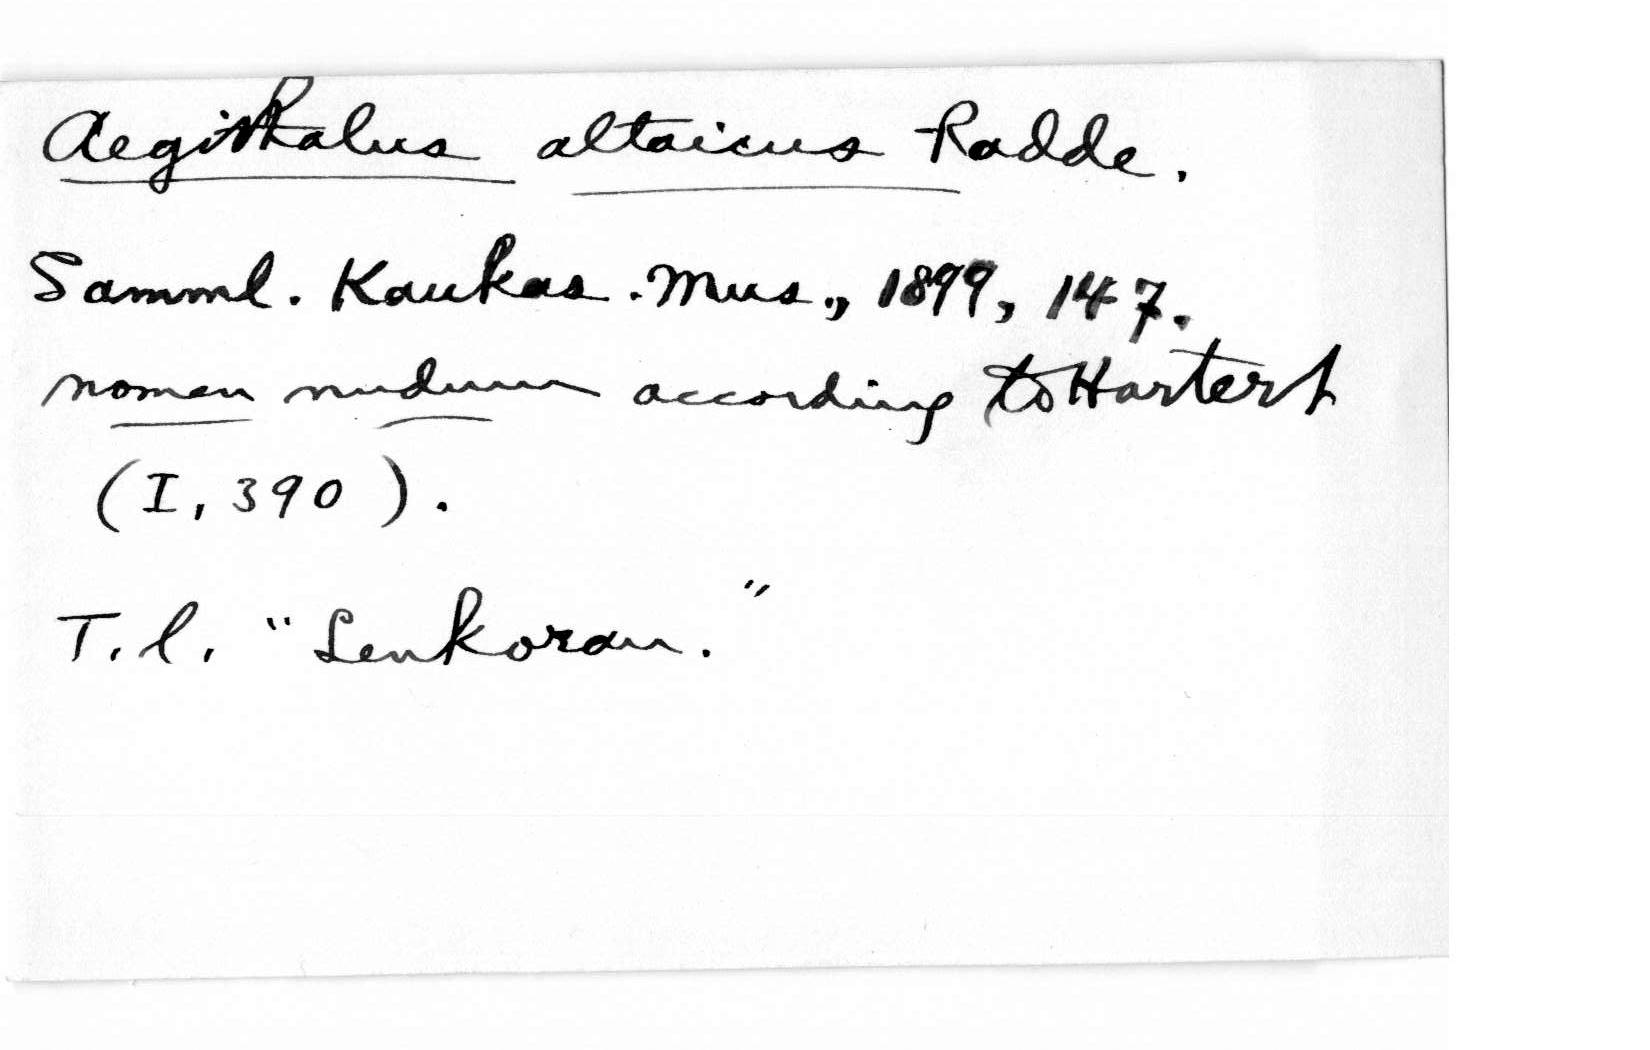 Aegithalus altaicus Radde.
Samml. Kaukas. Mus., 1899, 147.
nomen nudum according to Hartert
(I, 390).
T. l. "Lenkoran."